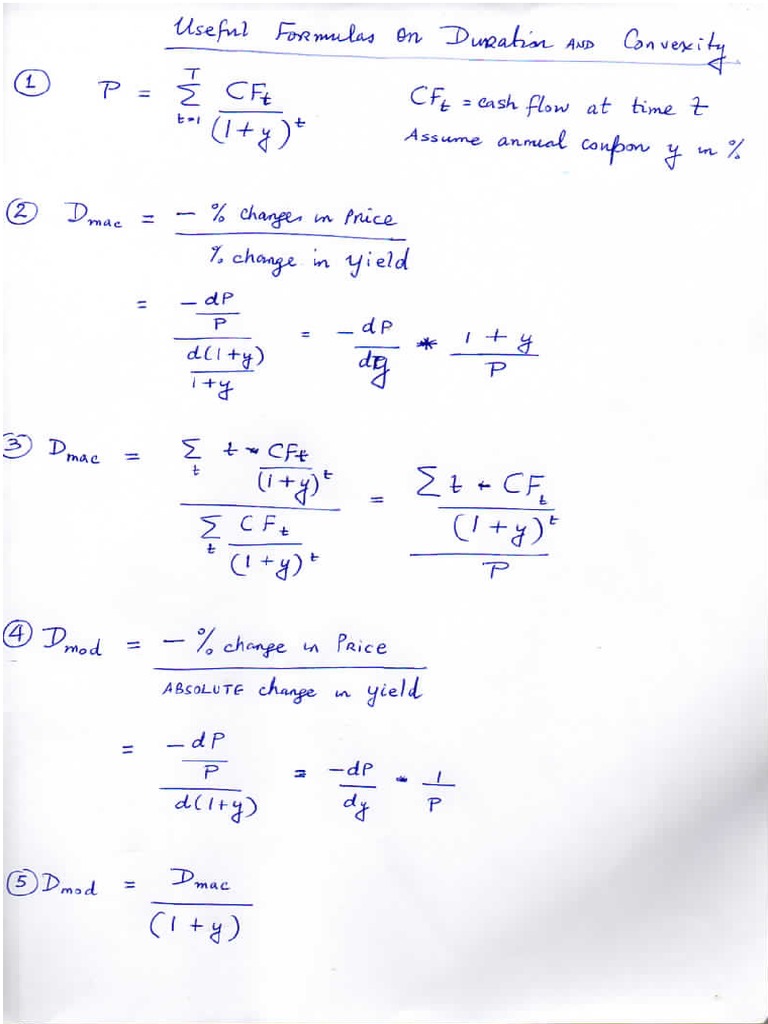 Useful Formulas on Duration AND Convexity
① P = T Σ t=1 CFt / (1+y)^t CFt = cash flow at time t
Assume annual coupon y in %
② Dmac = - % changes in Price
% change in yield
= -dP/P / d(1+y)/1+y = -dP/dy * 1+y/P
③ Dmac = Σt t * CFt/(1+y)^t / Σt CFt/(1+y)^t = Σ t * CFt/(1+y)^t / P
④ Dmod = - % change in Price
ABSOLUTE change in yield
= -dP/P / d(1+y) = -dP/dy * 1/P
⑤ Dmod = Dmac / (1+y)